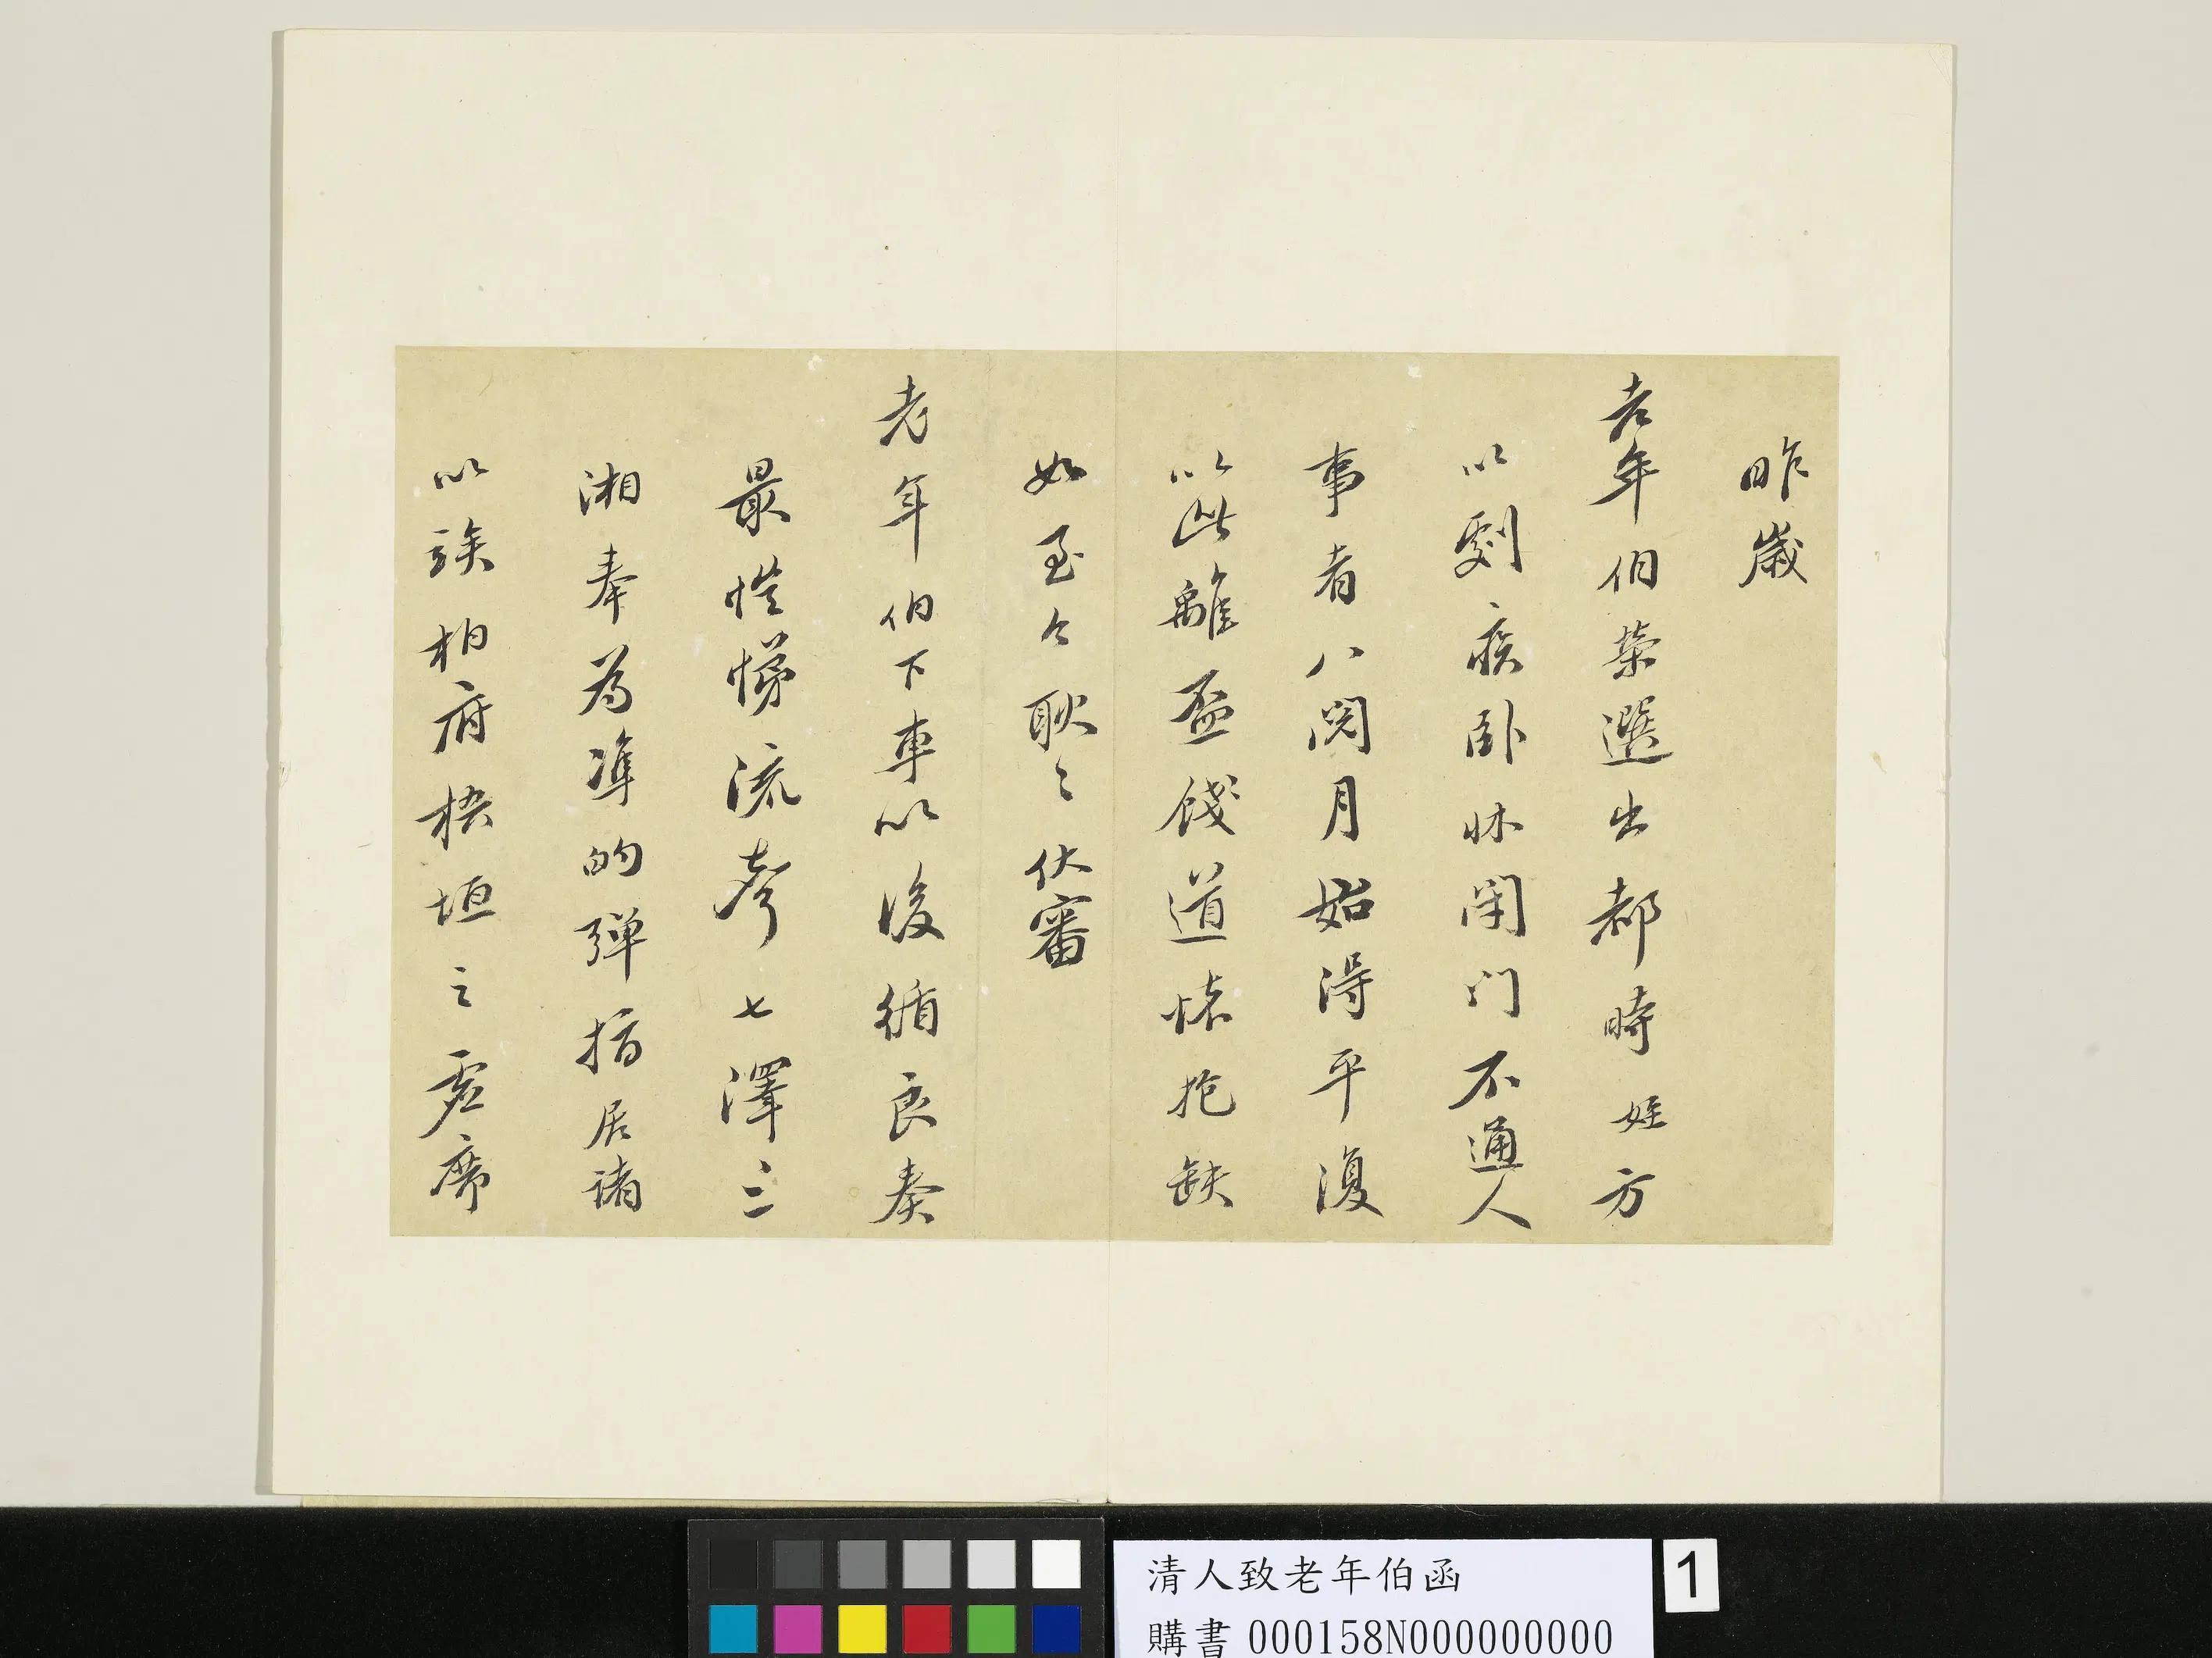 昨歲
老年伯榮選出都時姪方
以劇疾臥牀閉門不通人
事者八閱月始得平復
以此離盃餞道懷抱缺
如至今耿〻伏審
老年伯下車以後循良奏
最愷悌流聲七澤三
湘奉為準的彈指居諸
以族相府梧垣之虛席
清人致老年伯函
購書 000158N000000000
1